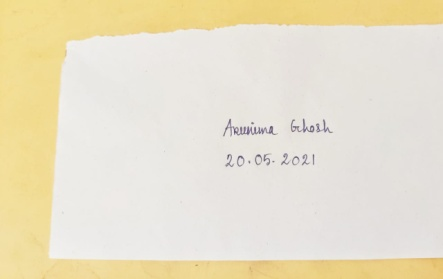 Arunima Ghosh
20.05.2021